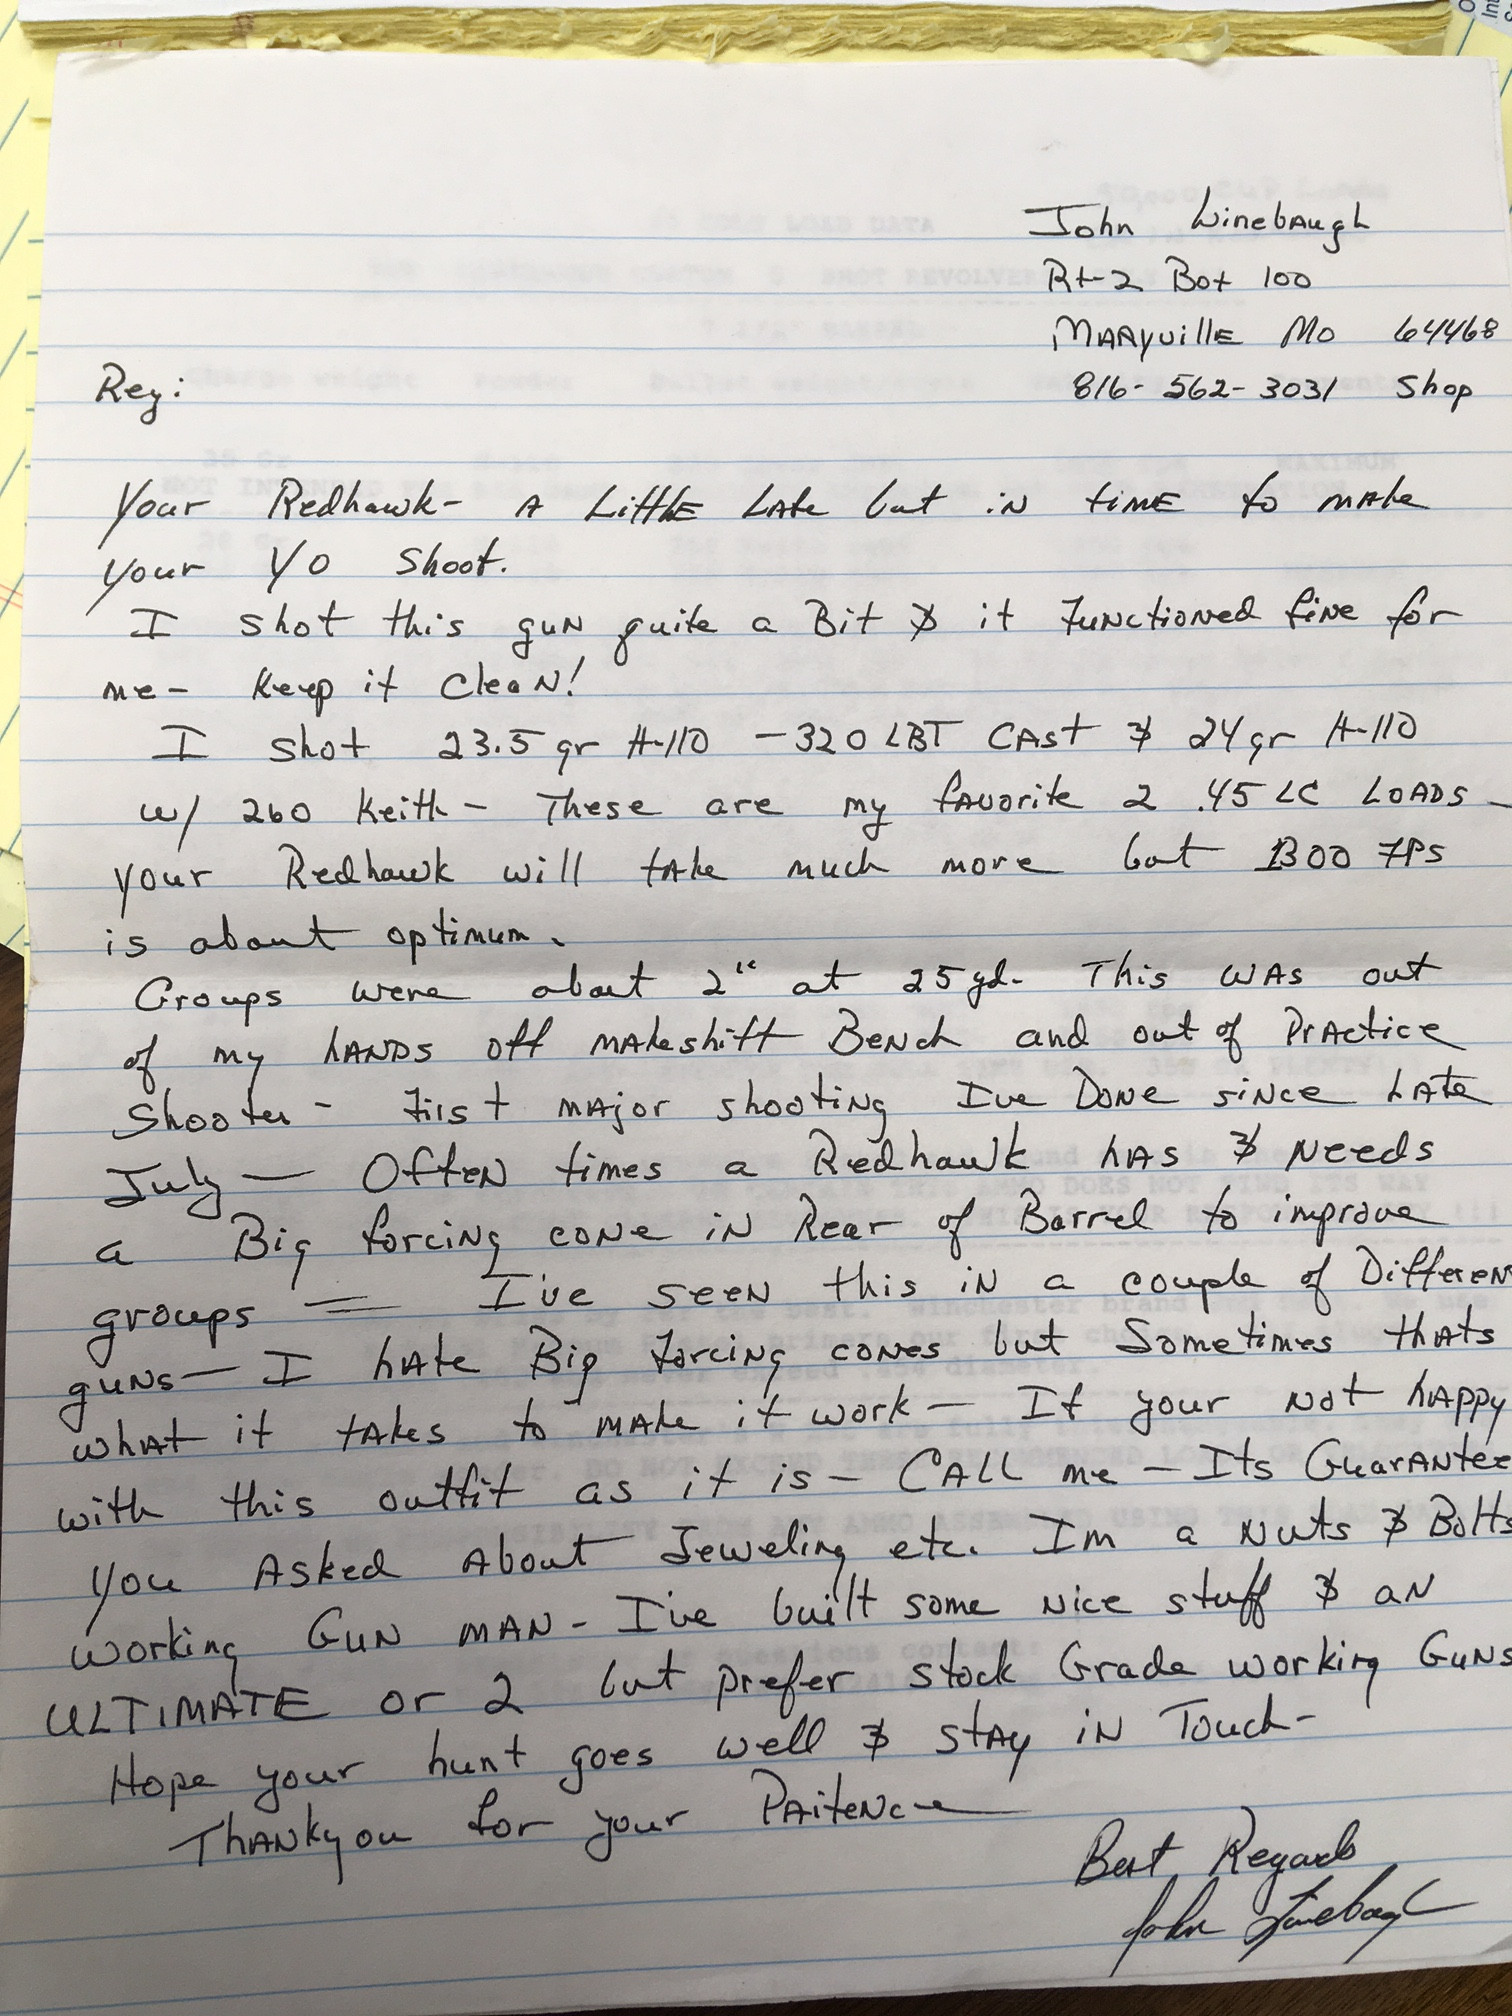 John Linebaugh
Rt-2 Box 100
Maryville Mo 64468
816-562-3031 Shop
Reg:
Your Redhawk- A Little Late but in time to make
your YO Shoot.
I shot this gun quite a Bit & it Functioned fine for
me- Keep it Clean!
I shot 23.5 gr H-110 - 320 LBT Cast & 24 gr H-110
w/ 260 Keith - These are my favorite 2 .45 LC LOADS -
your Redhawk will take much more but 1300 FPS
is about optimum.
Groups were about 2" at 25 yd. This was out
of my hands off makeshift Bench and out of Practice
Shooter - First major shooting Ive Done since Late
July - Often times a Redhawk has & Needs
a Big forcing cone in Rear of Barrel to improve
groups = I've seen this in a couple of Differen
guns - I hate Big Forcing cones but Sometimes thats
what it takes to make it work - If your not happy
with this outfit as it is - CALL me - Its Guarantee
You Asked About Jeweling etc. Im a Nuts & Bolts
working Gun man - I've built some nice stuff & an
ULTIMATE or 2 but prefer stock Grade working Guns
Hope your hunt goes well & stay in Touch -
Thankyou for your Paitence
Best Regards
John Linebaugh